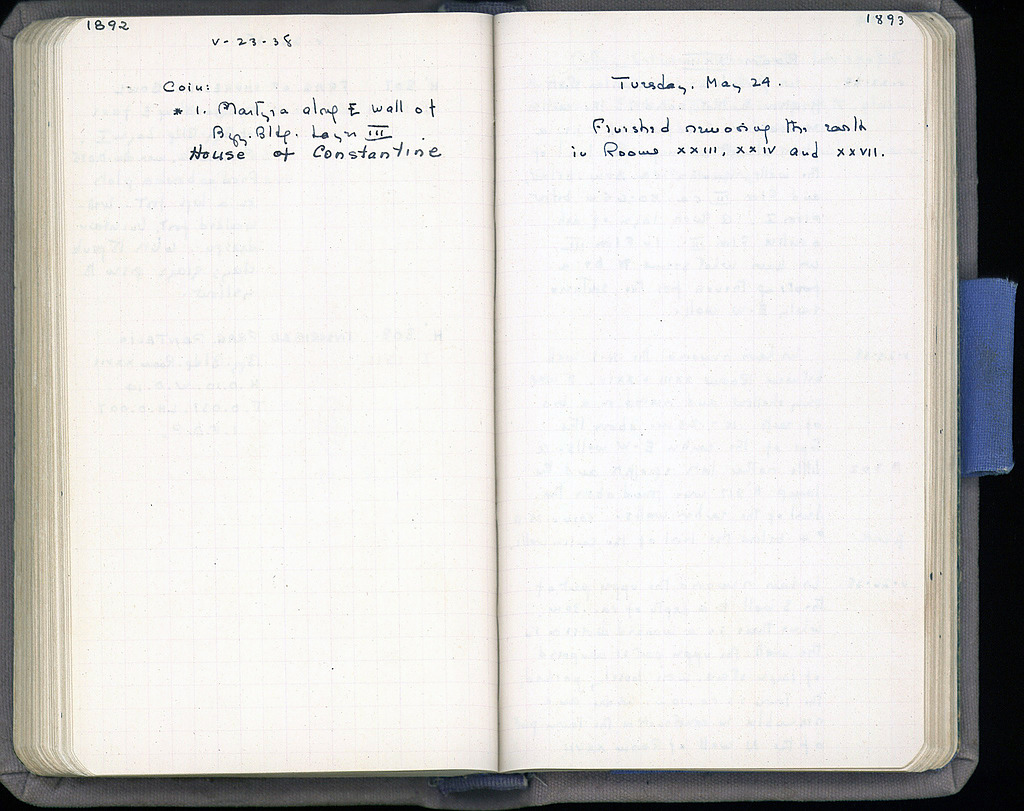 1892
V-23-38
Coin:
*1. Martyra along E wall of
Byz. Bldg. Layer III.
House of Constantine
1893
Tuesday, May 24.
Finished removing the earth
in Rooms XXIII, XXIV and XXVII.